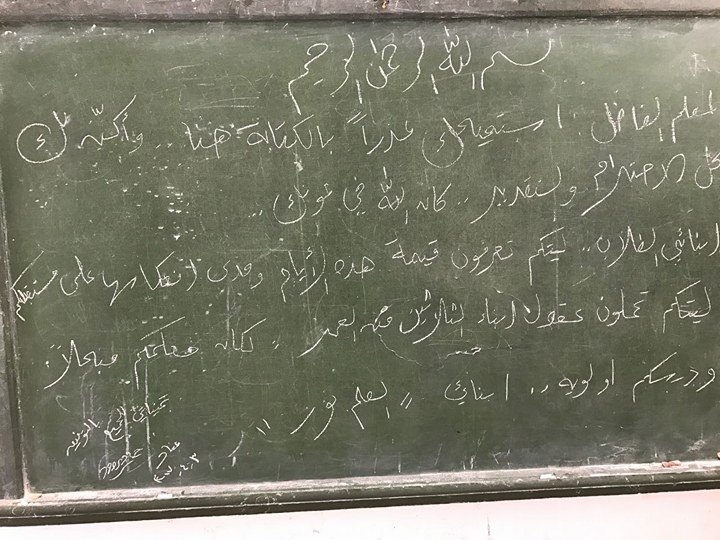 بسم الله الرحمن الرحيم
المعلم الفاضل .. استميحك عذراً بالكتابة هنا .. وأكنّ لك
كل الاحترام والتقدير .. كان الله في عونك ..
ابنائي الطلاب .. ليتكم تعرفون قيمة هذه الأيام ومدى انعكاسها على مستقبلكم
ليتكم تملون عقول ابناء الثلاثين من العمر .. لكان
ودرسكم اولويه .. ابنائي .. العلم نور !!
تمنياتي للجميع بالتوفيق